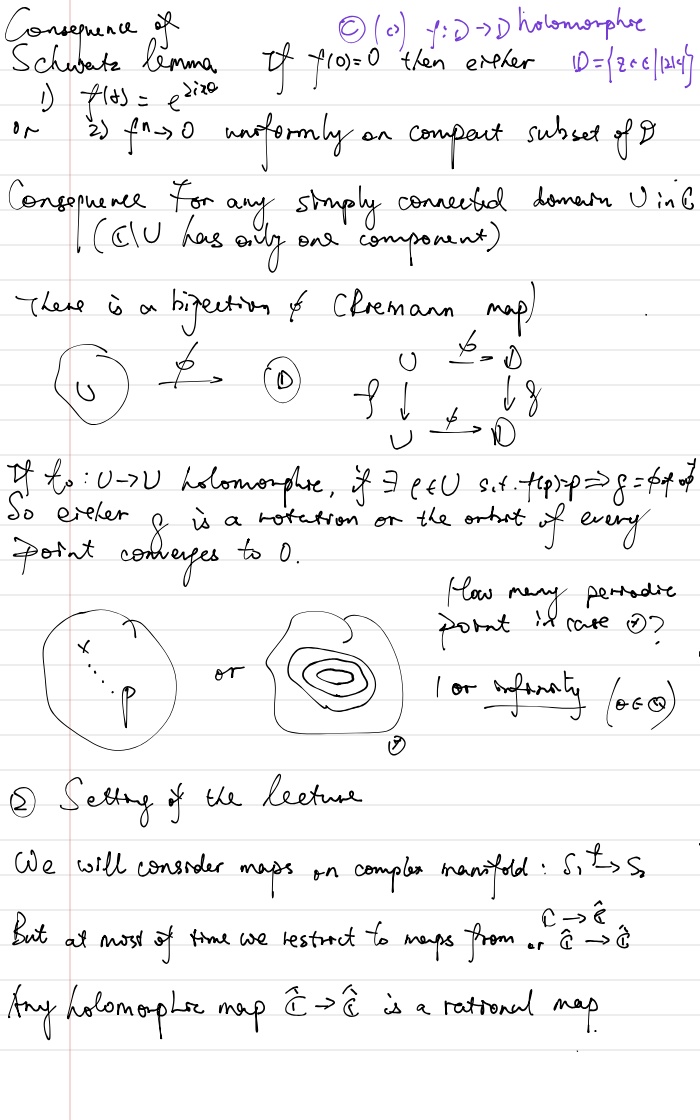 Consequence of
Schwartz lemma
© (c) f: D → D holomorphic
If f(0)=0 then either
D = {z ∈ ℂ | |z|<1}
1) f(z) = e^{2iπθ}
or 2) fⁿ → 0 uniformly on compact subset of D
Consequence For any simply connected domain U in ℂ
(ℂ\U has only one component)
There is a bijection ϕ (Riemann map)
U ϕ→ D
U ϕ→ D
f ↓ ↓ g
U ϕ→ D
If f: U → U holomorphic, if ∃ p ∈ U s.t. f(p)=p ⇒ g = ϕfϕ⁻¹
So either g is a rotation or the orbit of every
point converges to 0.
x
p
or
How many periodic
point in case
1 or infinity (θ ∈ ℚ)
② Setting of the lecture
We will consider maps on complex manifold : S₁ f→ S₂
But at most of time we restrict to maps from ℂ → Ĉ
or Ĉ → Ĉ
Any holomorphic map Ĉ → Ĉ is a rational map.